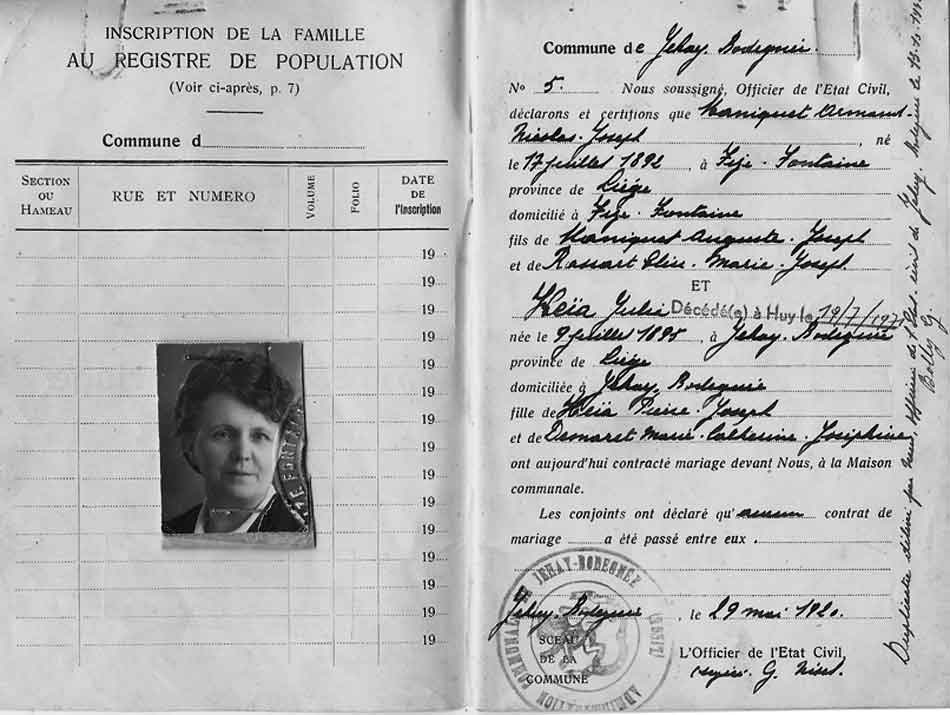 INSCRIPTION DE LA FAMILLE
AU REGISTRE DE POPULATION
(Voir ci-après, p. 7)
Commune d
SECTION OU HAMEAU
RUE ET NUMERO
VOLUME
FOLIO
DATE DE l'Inscription
19
19
19
19
19
19
19
19
19
19
19
19
19
19
19
E FONTAI
Commune de Jehay-Bodegnée.
No 5. Nous soussigné, Officier de l'Etat Civil,
déclarons et certifions que Maniquet Armand-
Nicolas-Joseph, né
le 17 juillet 1892, à Fize-Fontaine
province de Liége
domicilié à Fize-Fontaine
fils de Maniquet Auguste-Joseph
et de Marie-Joseph
ET
Heïa Julie Décédé(e) à Huy le 19/7/197
née le 9 juillet 1895, à Jehay-Bodegnée
province de Liége
domiciliée à Jehay-Bodegnée
fille de Heïa Pierre-Joseph
et de Desmaret Marie-Catherine-Joséphine
ont aujourd'hui contracté mariage devant Nous, à la Maison
communale.
Les conjoints ont déclaré qu'aucun contrat de
mariage a été passé entre eux.
Jehay-Bodegnée, le 29 mai 1920.
SCEAU
DE LA
COMMUNE
L'Officier de l'Etat Civil,
G.
ADMINISTRATION COMMUNALE DE JEHAY-BODEGNÉE (LIÉGE)
Duplicata délivré par Nous, officier de l'état-civil de Jehay-Bodegnée le